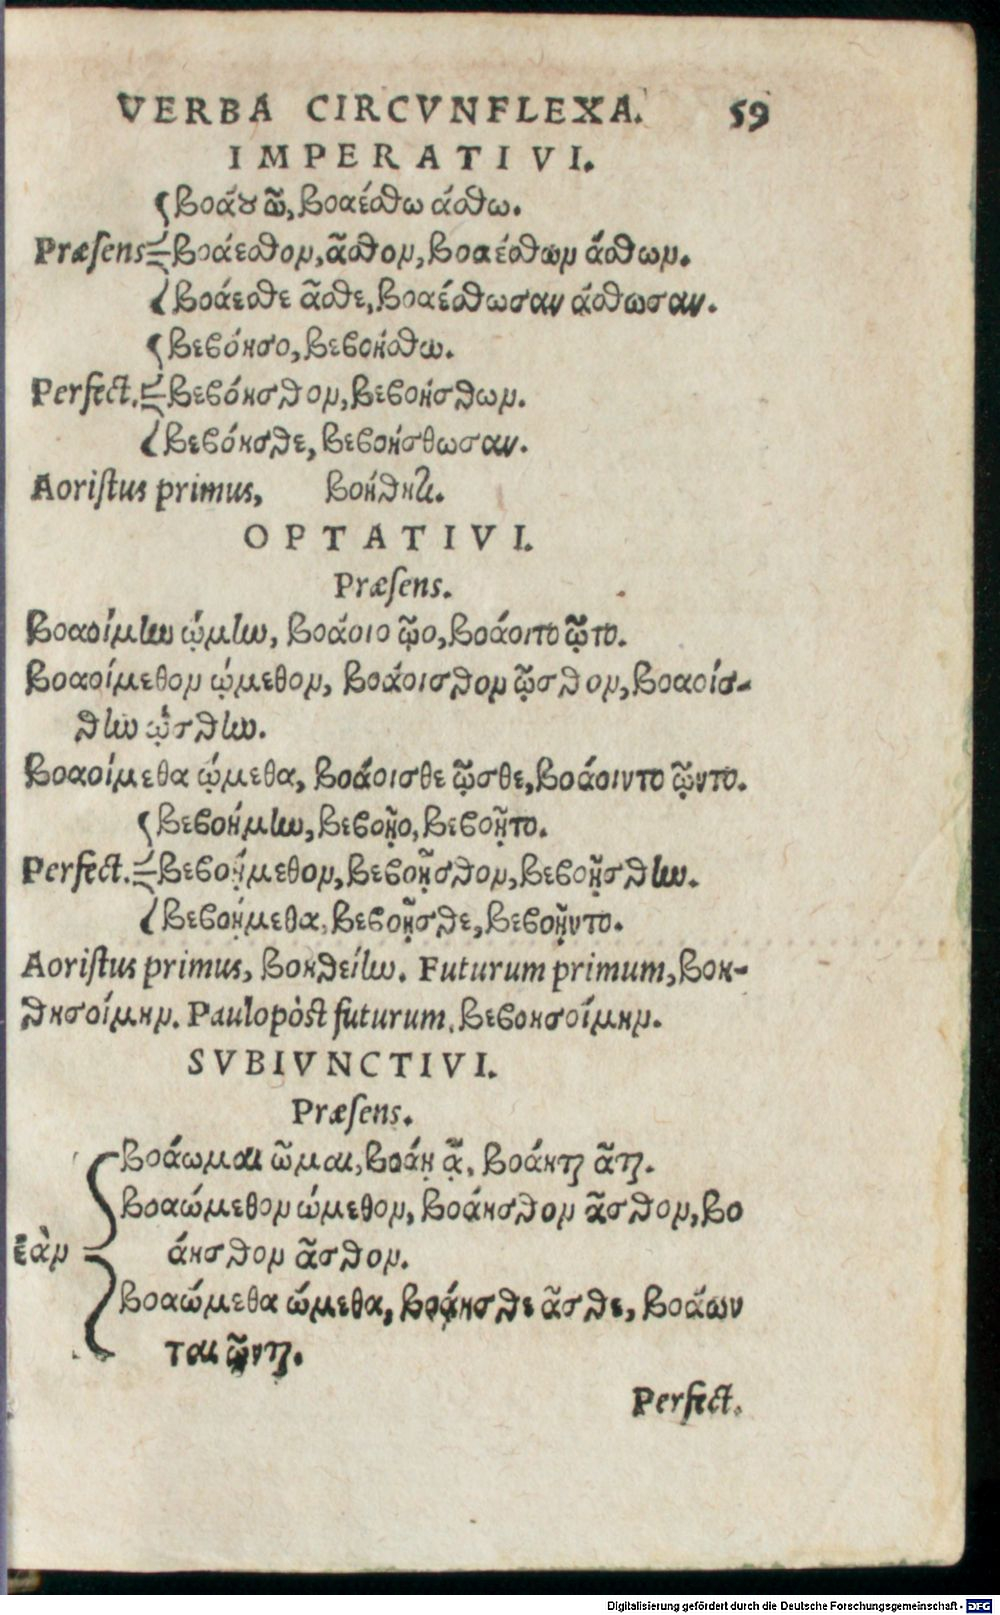 VERBA CIRCVNFLEXA. 59
IMPERATIVI.
Βοάȣ ῶ, Βοαέσθω άσθω.
Præsens Βοάεσθον, ᾶσθον, Βοαέσθων άσθων.
Βοάεσθε ᾶσθε, Βοαέσθωσαν άσθωσαν.
Βεβόησο, Βεβοήσθω.
Perfect. Βεβόησθον, Βεβοήσθων.
Βεβόησθε, Βεβοήσθωσαν.
Aoristus primus, Βοήθητι.
OPTATIVI.
Præsens.
Βοαοίμην ῴμην, Βοάοιο ῷο, Βοάοιτο ῷτο.
Βοαοίμεθον ῴμεθον, Βοάοισθον ῷσθον, Βοαοίσ-
θην ῴσθην.
Βοαοίμεθα ῴμεθα, Βοάοισθε ῷσθε, Βοάοιντο ῷντο.
Βεβοήμην, Βεβοῇο, Βεβοῇτο.
Perfect. Βεβοῄμεθον, Βεβοῇσθον, Βεβοῇσθην.
Βεβοῄμεθα, Βεβοῇσθε, Βεβοῇντο.
Aoristus primus, Βοηθείην. Futurum primum, Βοη-
θησοίμην. Paulopòst futurum, Βεβοησοίμην.
SVBIVNCTIVI.
Præsens.
Βοάωμαι ῶμαι, Βοάῃ ᾷ, Βοάηται ᾶται.
Βοαώμεθον ώμεθον, Βοάησθον ᾶσθον, Βο
ἐὰν άησθον ᾶσθον.
Βοαώμεθα ώμεθα, Βοάησθε ᾶσθε, Βοάων
ται ῷνται.
Perfect.
Digitalisierung gefördert durch die Deutsche Forschungsgemeinschaft - DFG